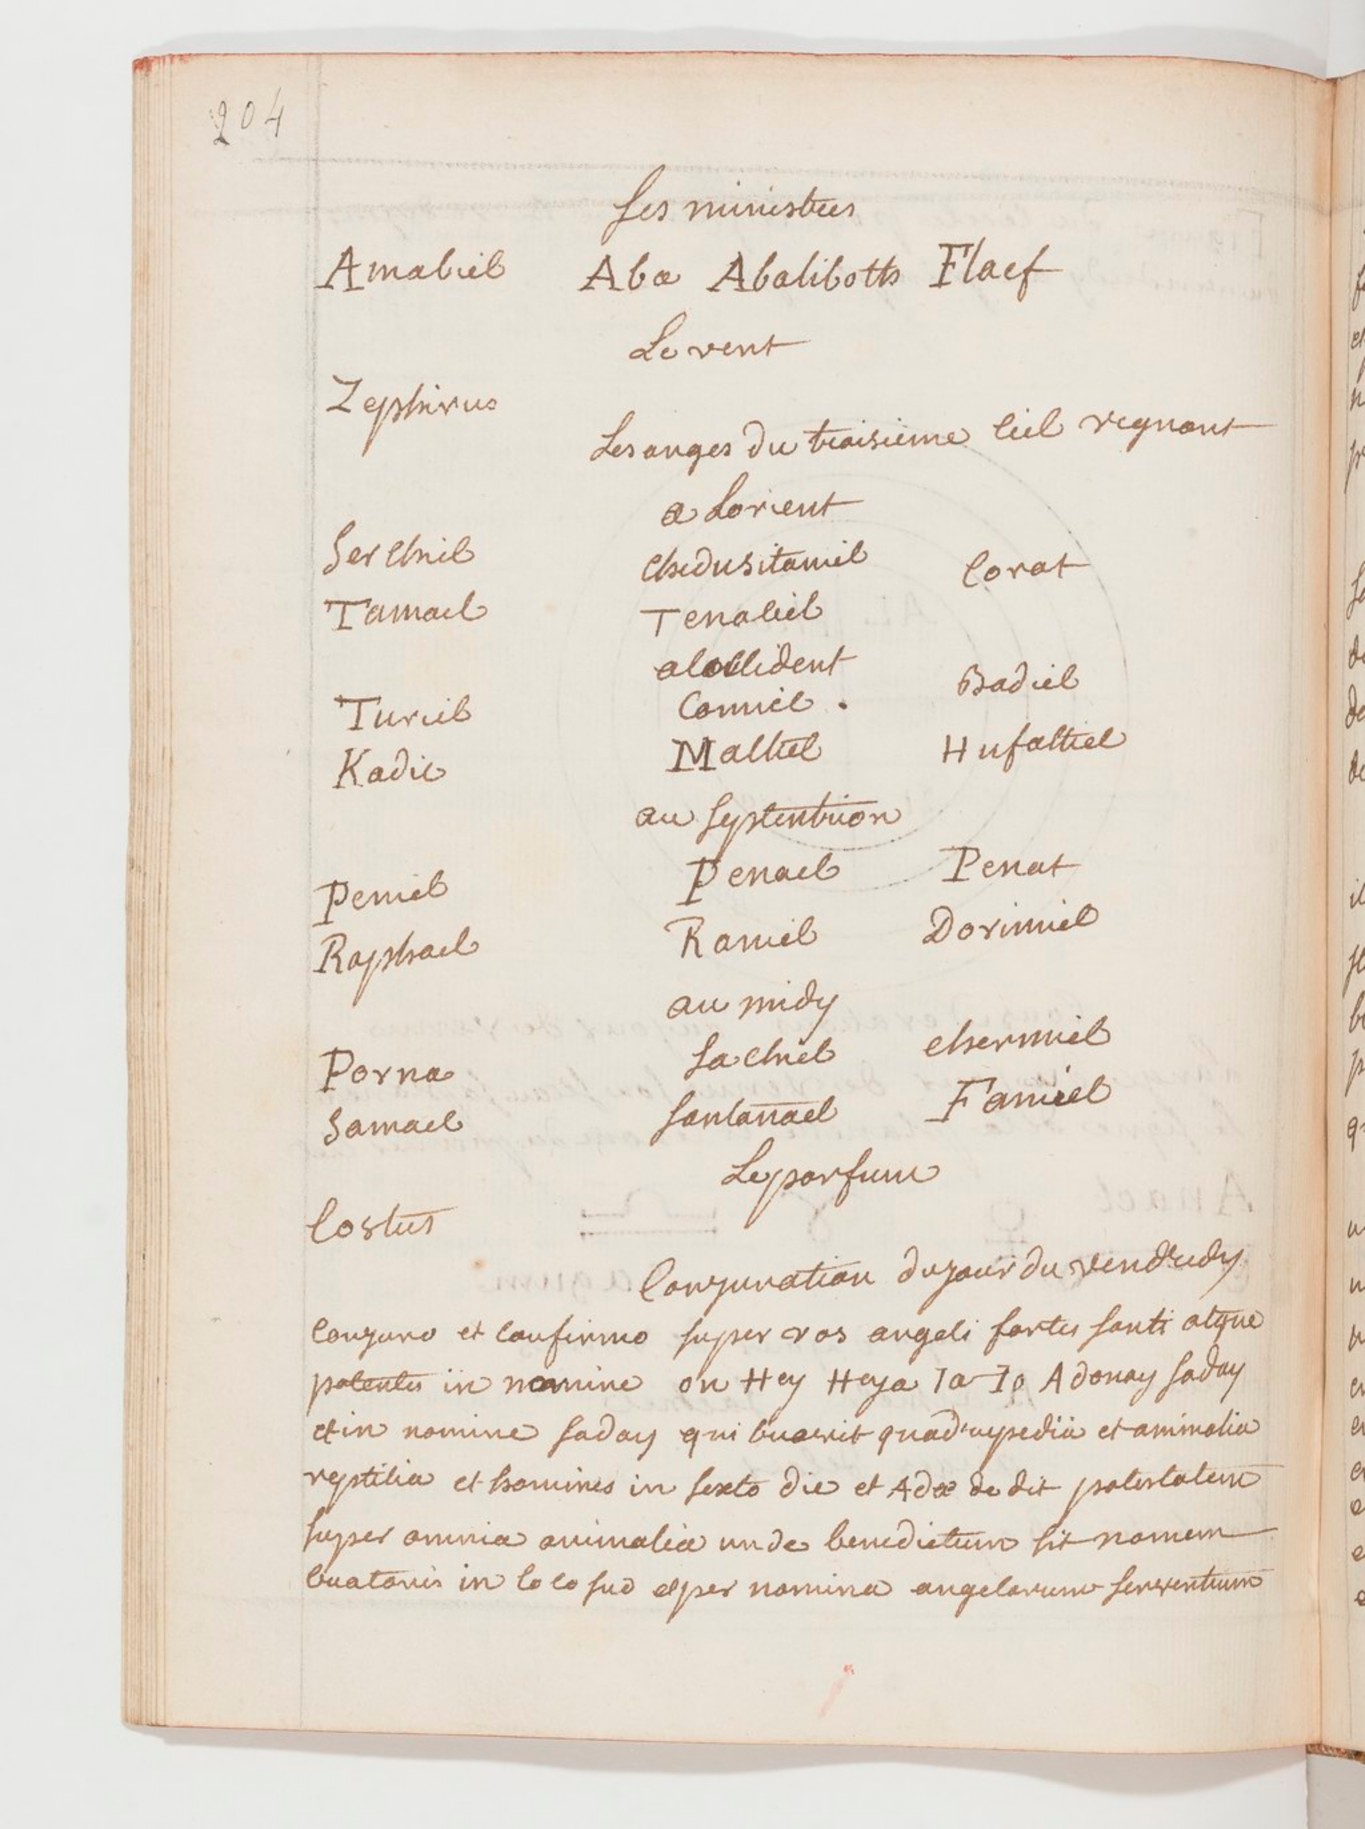 204
Les ministres
Amabiel Aba Abaliboth Flaef
Le vent
Zephirus
Les anges du troisieme Ciel regnant
a Lorient
Serchiel Chedusitaniel Corat
Tamael Tenaliel
aloccident
Turiel Coniiel . Badiel
Kadie Maltiel Hufaltiel
au septentrion
Peniel Penael Penat
Raphael Raniel Doriniel
au midy
Porna Sachiel Chermiel
Samael Santanael Famiel
Le parfum
Costus
Conjuration du jour du vendredy
Conjuro et Confirmo super vos angeli fortes santi atque
potentes in nomine on Hey Heya Ia Io Adonay saday
et in nomine saday qui Creavit quadrupedia et animalia
reptilia et homines in sexto die et Adæ dedit potestatem
super omnia animalia unde benedictum sit nomem
Creatoris in loco suo et per nomina angelorum serventium